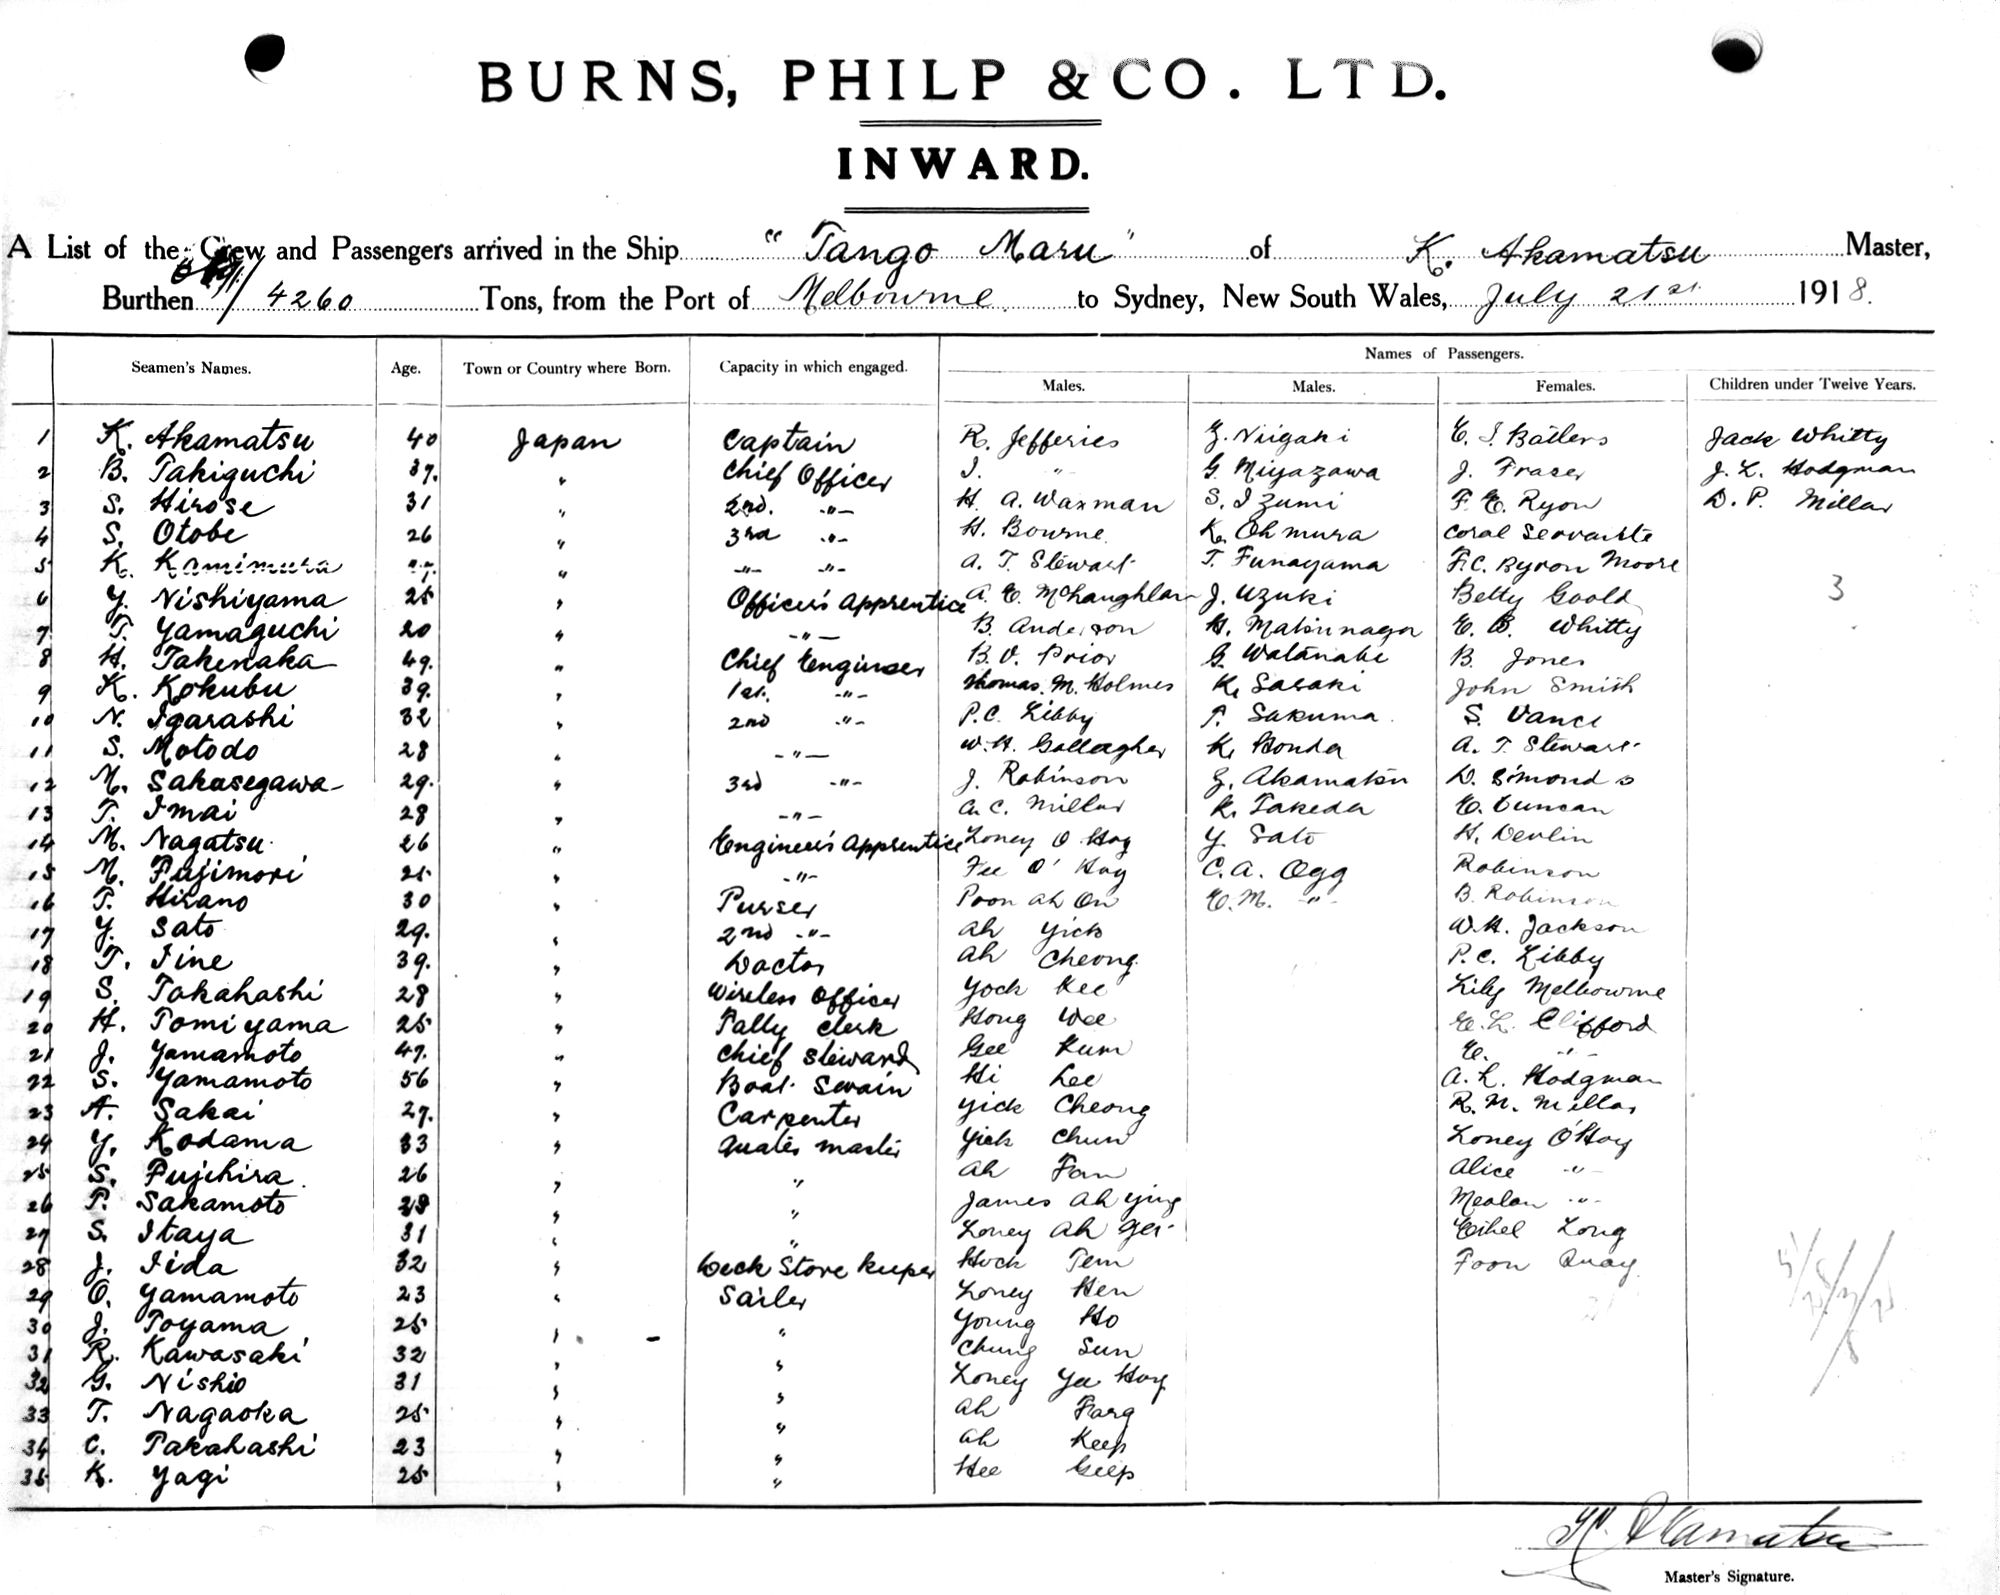 BURNS, PHILP & CO. LTD.
INWARD.
A List of the Crew and Passengers arrived in the Ship "Tango Maru" of K. Akamatsu Master,
Burthen 4260 Tons, from the Port of Melbourne to Sydney, New South Wales, July 21st. 1918.
Names of Passengers.
Seamen's Names. Age. Town or Country where Born. Capacity in which engaged. Males. Males. Females. Children under Twelve Years.
1 K. Akamatsu 40 Japan Captain R. Jefferies Z. Niigaki E. J. Batlers Jack Whitty
2 B. Takiguchi 37. " Chief Officer J. -"- G. Miyazawa J. Fraser J. L. Hodgman
3 S. Hirose 31 " 2nd. -"- H. A. Waxman S. Izumi F. E. Ryon D. P. Millar
4 S. Otobe 26 " 3rd -"- H. Bourne K. Ohmura Coral
5 K. Kamimura " -"- -"- A. T. Stewart T. Funayama F. C. Byron Moore
6 Y. Nishiyama 25 " Officer's Apprentice A. E. McLaughlan J. Uzuki Betty Goold 3
7 T. Yamaguchi 20 " -"- B. Anderson H. Matsunaga E. B. Whitty
8 H. Takenaka 49. " Chief Engineer B. V. Prior G. Watanabe B. Jones
9 K. Kokubu 39. " 1st. -"- Thomas. M. Holmes K. Sasaki John Smith
10 N. Igarashi 32 " 2nd -"- P. C. Libby T. Sakuma S. Vance
11 S. Motodo 28 " -"- W. H. Gallagher K. Honda A. T. Stewart
12 M. Sakasegawa 29. " 3rd -"- J. Robinson Z. Akamatsu D. Simonds
13 T. Imai 28 " -"- A. C. Millar K. Takeda E. Duncan
14 M. Nagatsu 26 " Engineer's Apprentice Loney O Hoy Y. Sato H. Devlin
15 M. Fujimori 25 " -"- Fee O' Hoy C. A. Ogg Robinson
16 T. Hirano 30 " Purser Poon Ah On E. M. -"- B. Robinson
17 Y. Sato 29. " 2nd -"- Ah Yick W. H. Jackson
18 T. Iine 39. " Doctor Ah Cheong P. C. Libby
19 S. Takahashi 28 " Wireless Officer Yock Kee Lily Melbourne
20 H. Tomiyama 25 " Tally Clerk Hong Wee E. L. Clifford
21 J. Yamamoto 47. " Chief Steward Gee Kum E. -"-
22 S. Yamamoto 56 " Boat Swain Hi Lee A. L. Hodgman
23 A. Sakai 27. " Carpenter Yick Cheong R. M. Millar
24 Y. Kodama 33 " Quater master Yick Chun Loney O'Hoy
25 S. Fujihira. 26 " " Ah Fan Alice -"-
26 T. Sakamoto 28 " " James Ah Ying Mealan -"-
27 S. Itaya 31 " " Loney Ah Ethel Long
28 J. Iida 32 " Deck Store keeper Hock Tem Foon Quay
29 O. Yamamoto 23 " Sailer Loney Hen
30 J. Toyama 25 " " Young Ho
31 R. Kawasaki 32 " " Chung Sun
32 G. Nishio 31 " " Loney Yee Hoy
33 T. Nagaoka 25 " " Ah Farg
34 C. Takahashi 23 " " Ah Keep
35 K. Yagi 25 " " Hee Geep
K. Akamatsu
Master's Signature.